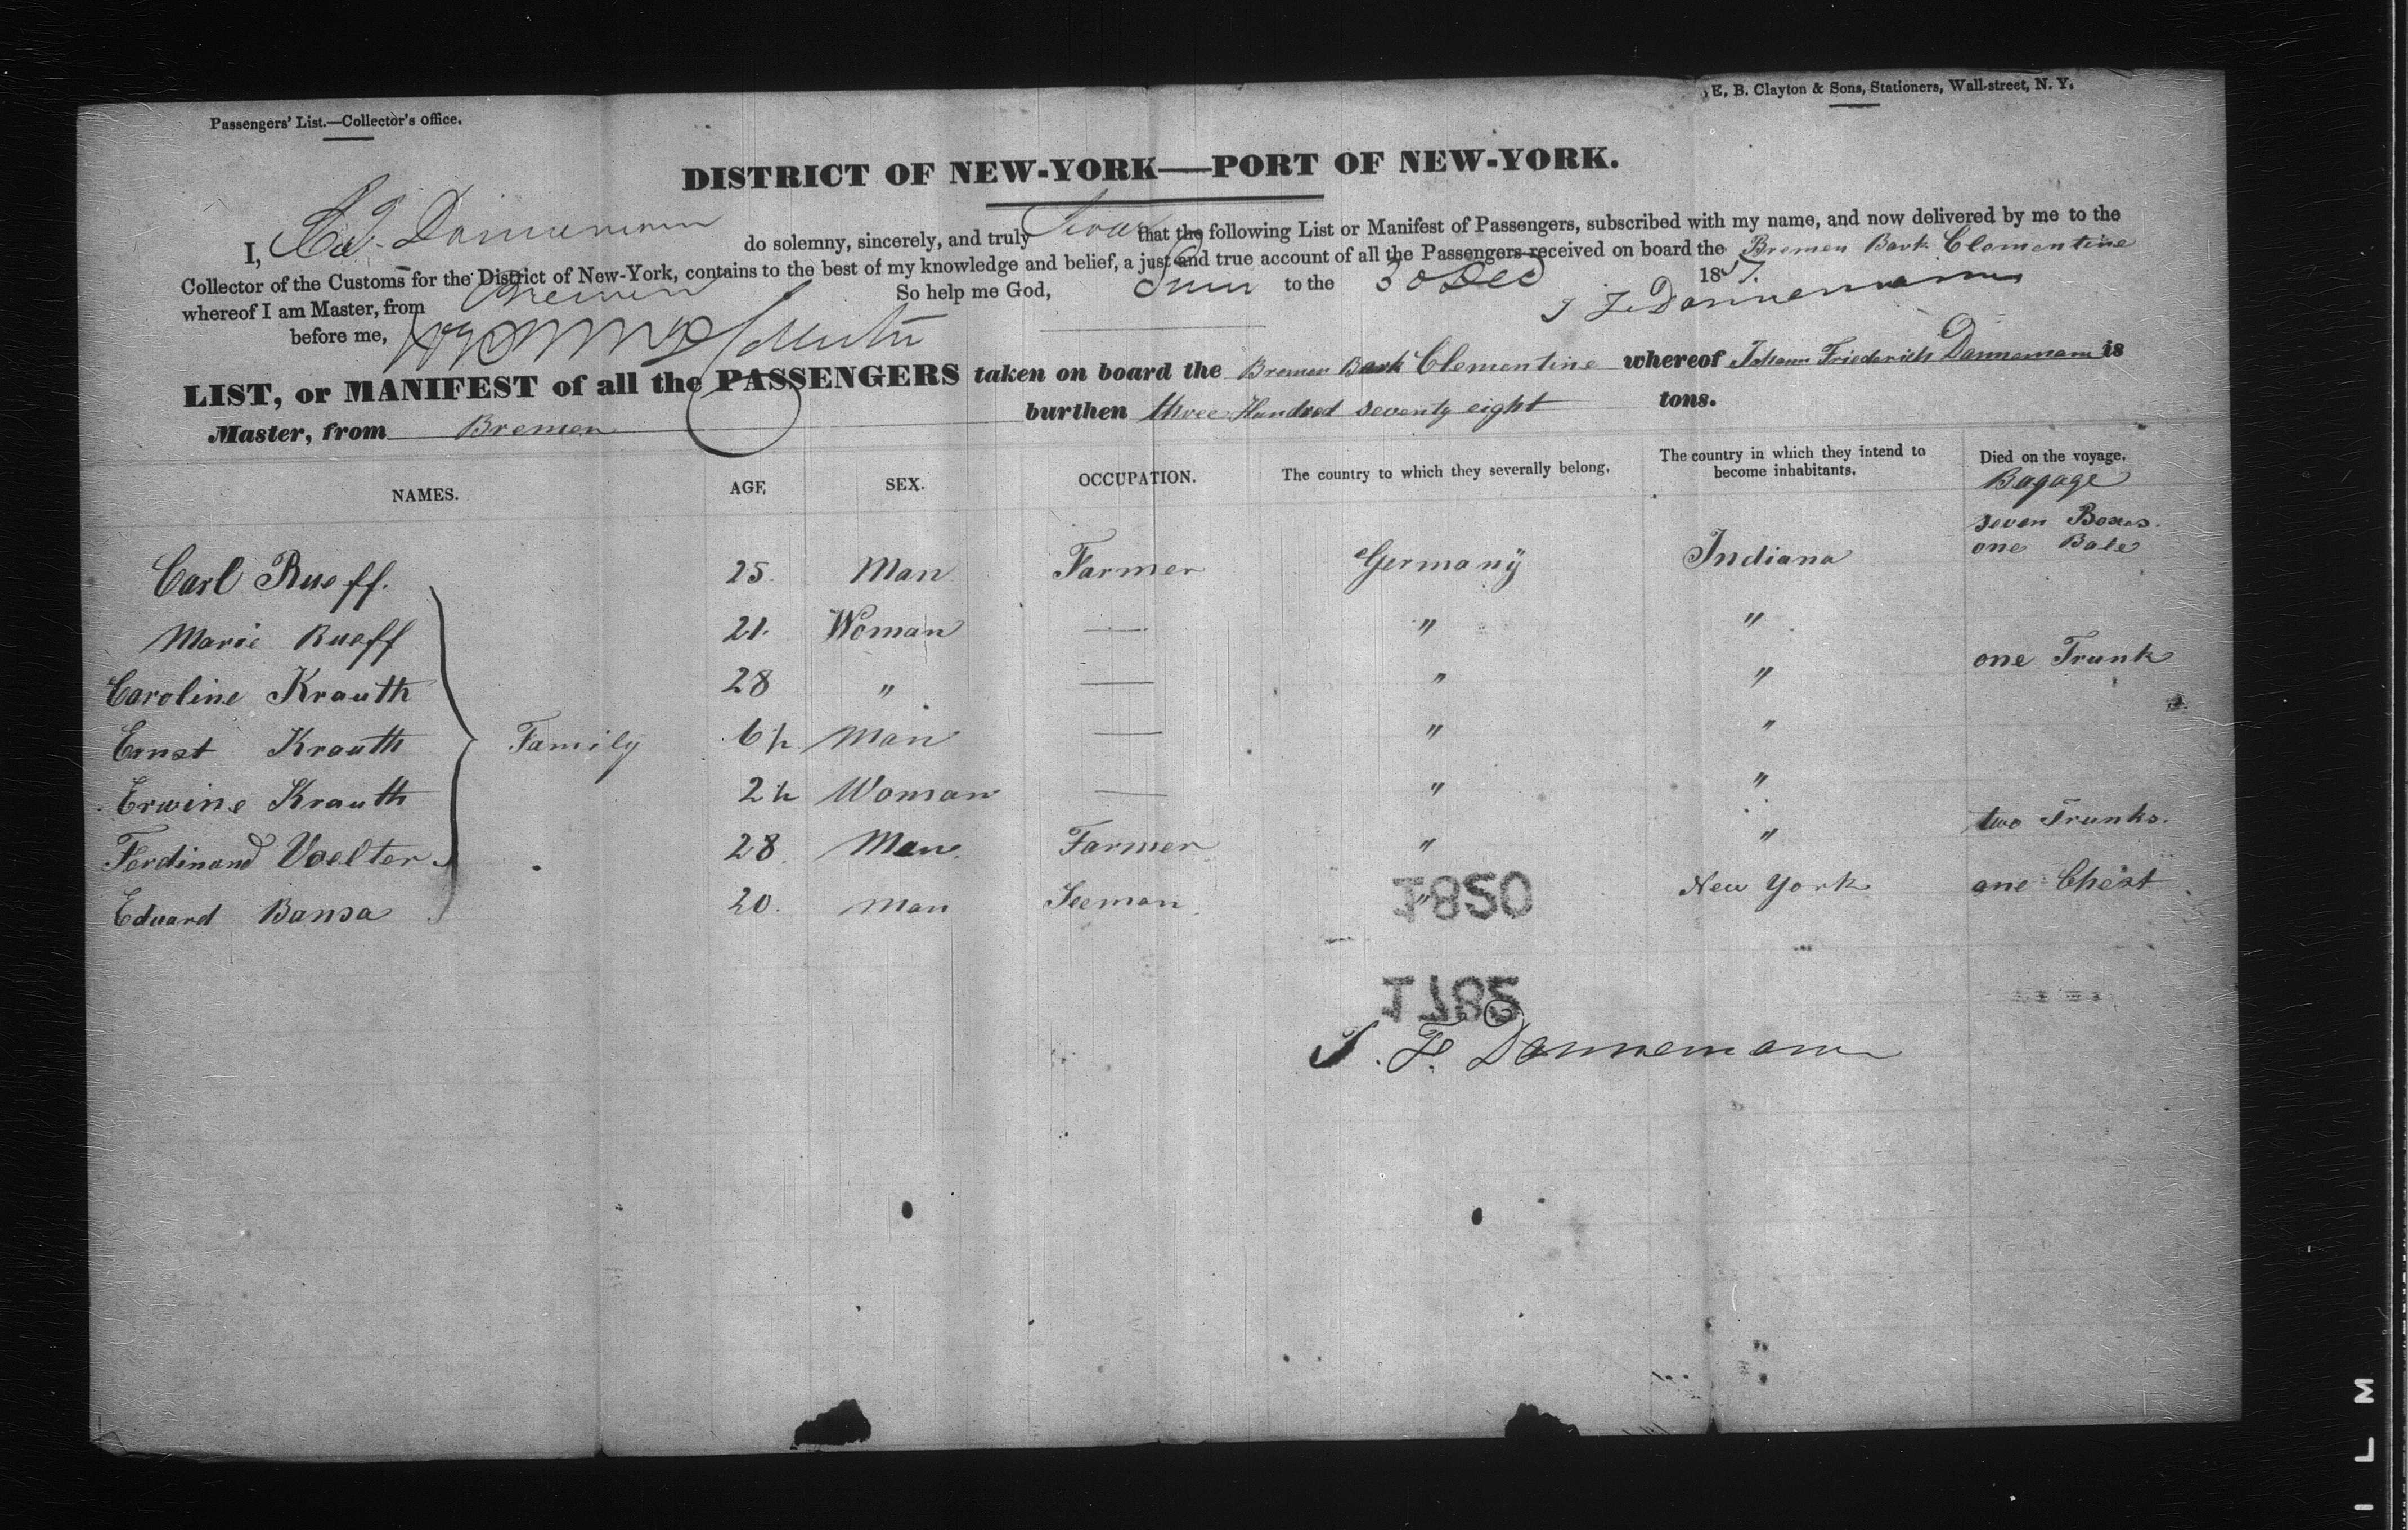 Passengers' List.—Collector's office.
E. B. Clayton & Sons, Stationers, Wall-street, N. Y.
DISTRICT OF NEW-YORK—PORT OF NEW-YORK.
I, Dannemann do solemny, sincerely, and truly Swear that the following List or Manifest of Passengers, subscribed with my name, and now delivered by me to the
Collector of the Customs for the District of New-York, contains to the best of my knowledge and belief, a just and true account of all the Passengers received on board the Bremen Bark Clementine
whereof I am Master, from Bremen So help me God, to the 30 Dec 1857.
before me, J F Dannemann
LIST, or MANIFEST of all the PASSENGERS taken on board the Bremen Bark Clementine whereof Johann Friederich Dannemann is
Master, from Bremen burthen three Hundred seventy eight tons.
NAMES. AGE SEX. OCCUPATION. The country to which they severally belong. The country in which they intend to become inhabitants. Died on the voyage.
Bagage
seven Boxes.
Carl Rueff. 25. Man Farmer Germany Indiana one Bale
Marie Rueff 21. Woman — " "
Caroline Krauth 28 " — " " one Trunk
Ernst Krauth Family 6½ Man — " "
Erwine Krauth 2½ Woman — " "
Ferdinand Voelter 28. Man. Farmer " " two Trunks.
Eduard Bansa 20. Man Seeman " New York one Chest
1850
1785
J. F. Dannemann
I L M